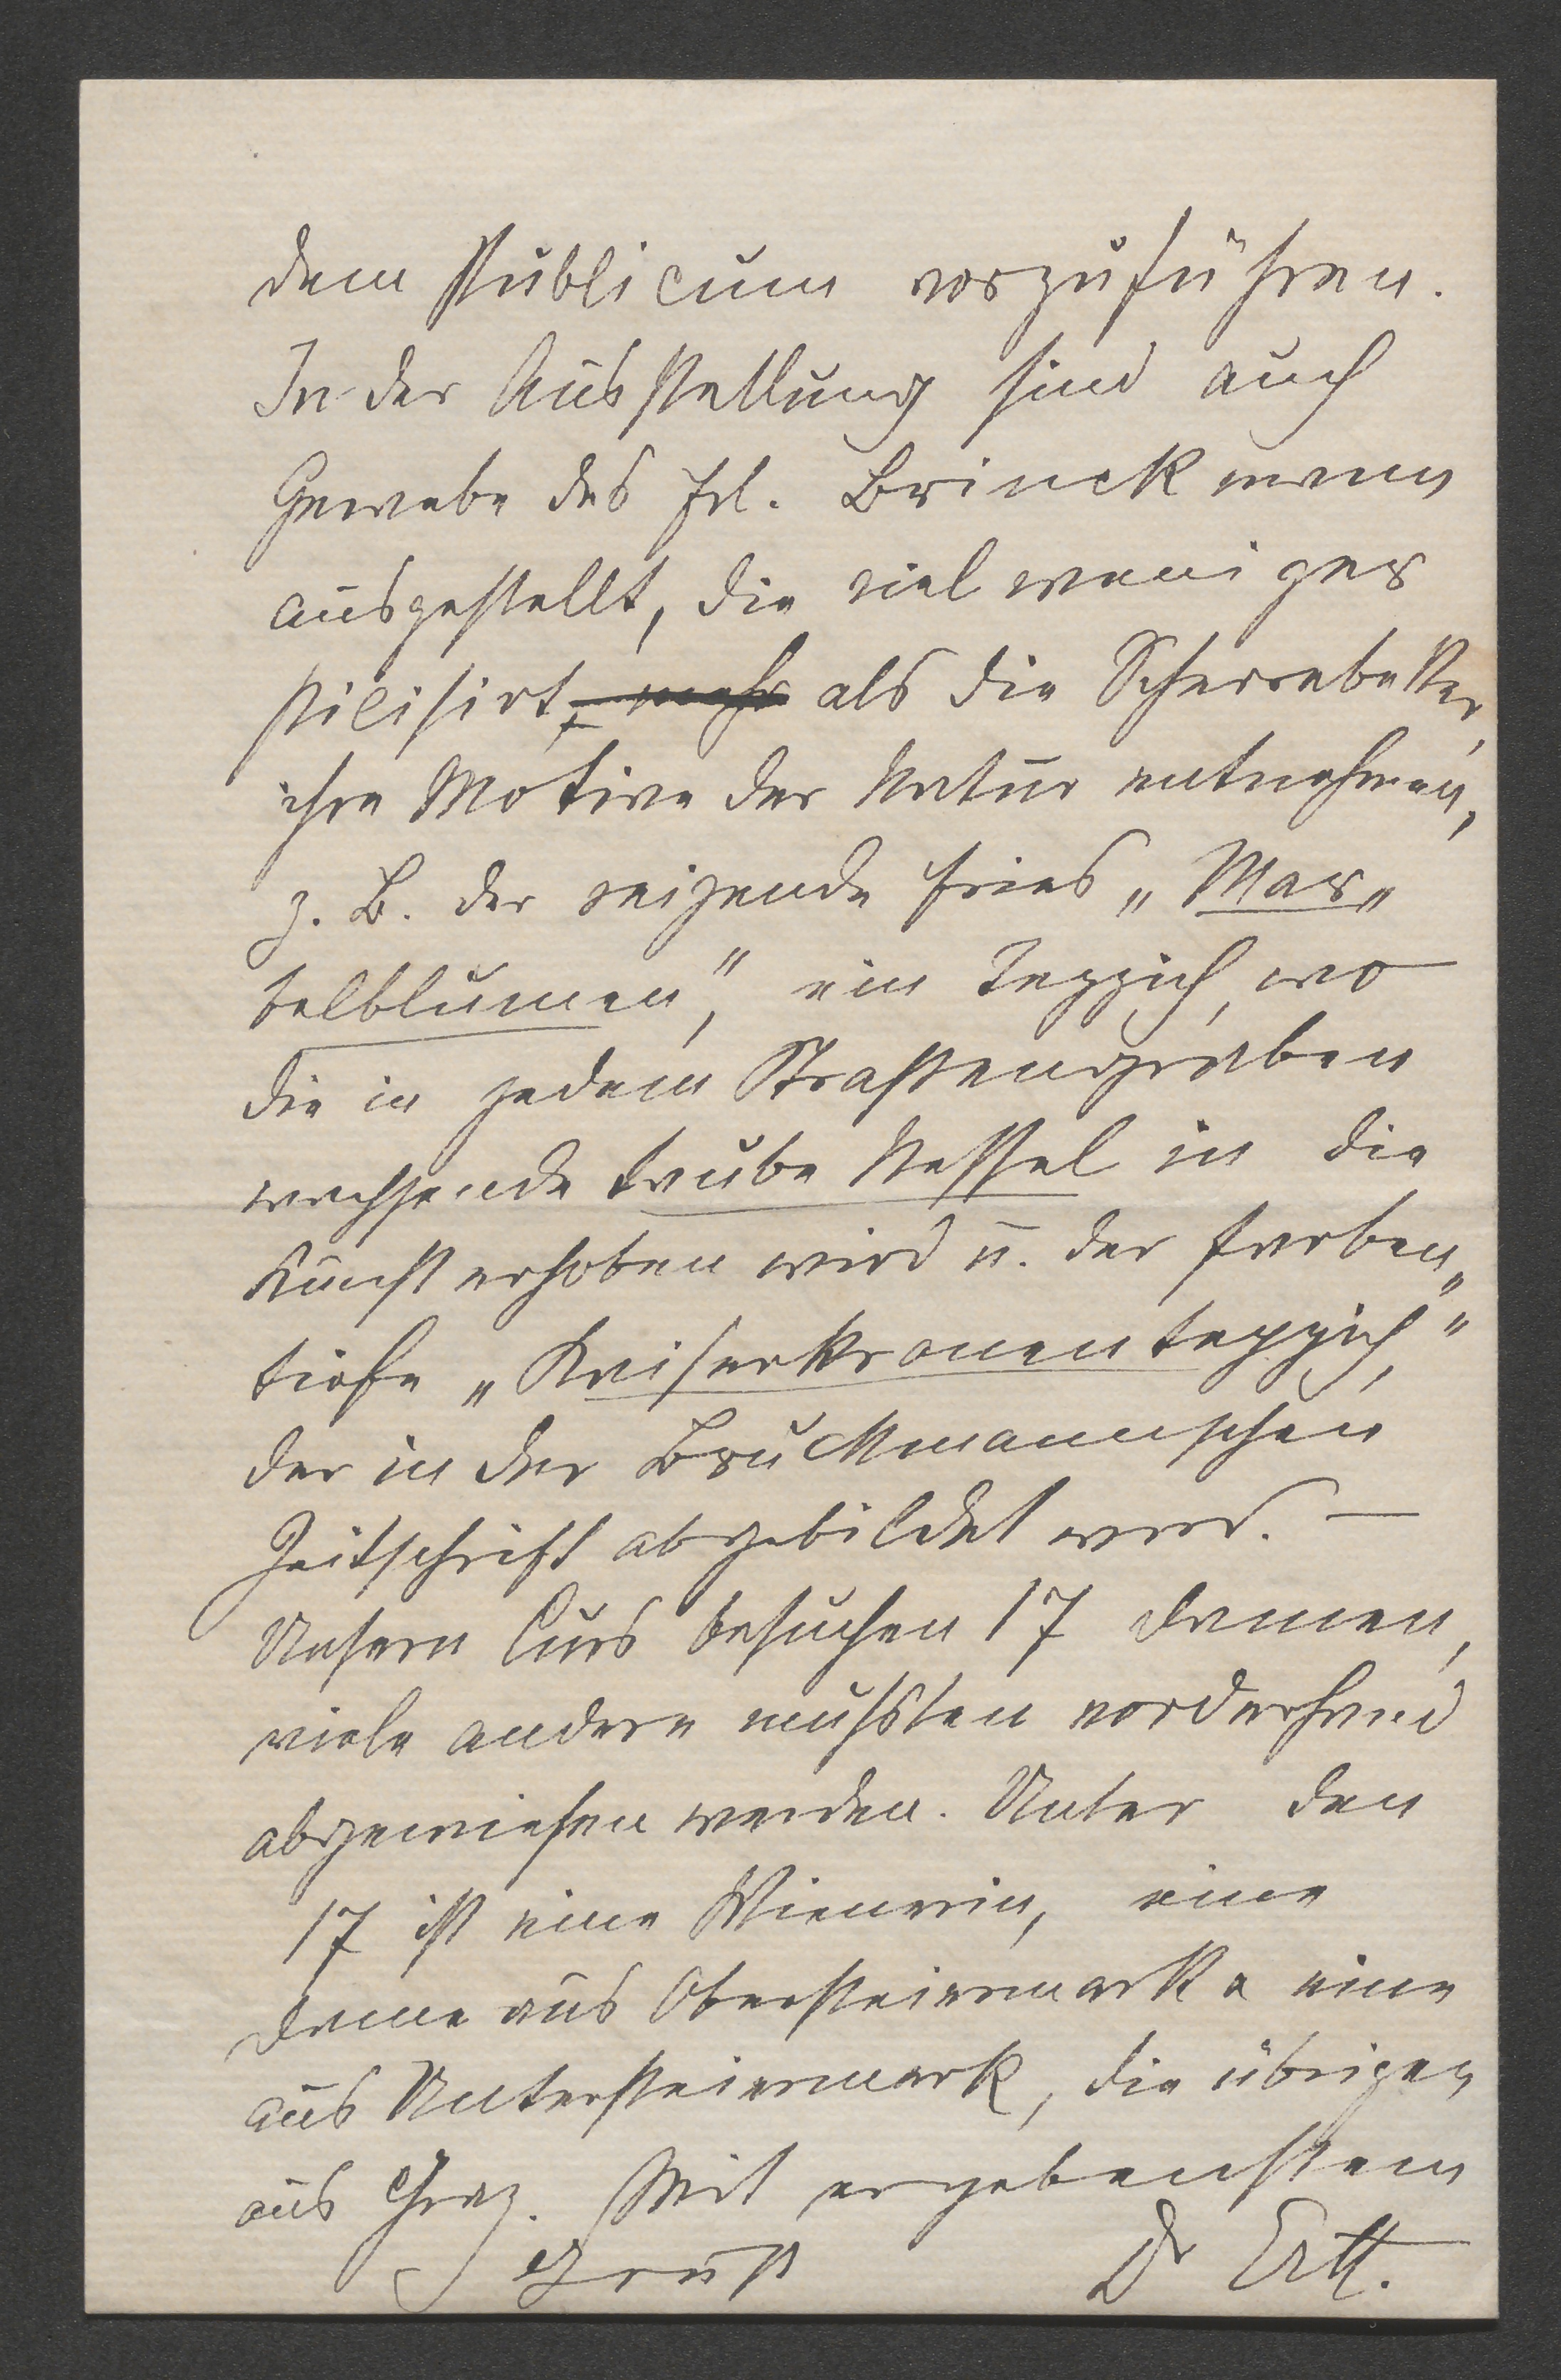 dem Publicum vorzuführen.
In der Ausstellung sind auch
Gewebe des Frl. Brinckmann
ausgestellt, die viel weniger
stilisirt, mehr als die Scherrebeker,
ihre Motive der Natur entnehmen,
z. B. der reizende Fries „Mar„
belblumen", ein Teppich, wo
die in jedem Straßengraben
wachsende taube Nessel in die
Kunst erhoben wird u. der farben„
tiefe „Kaiserkronenteppich,"
der in der Bruckmannschen
Zeitschrift abgebildet war. —
Unsern Curs besuchen 17 Damen,
viele andere mußten vorderhand
abgewiesen werden. Unter den
17 ist eine Wienerin, eine
Dame aus Obersteiermark & eine
aus Untersteiermark, die übrigen
aus Graz. Mit ergebenstem
Gruß Dr Ertl.